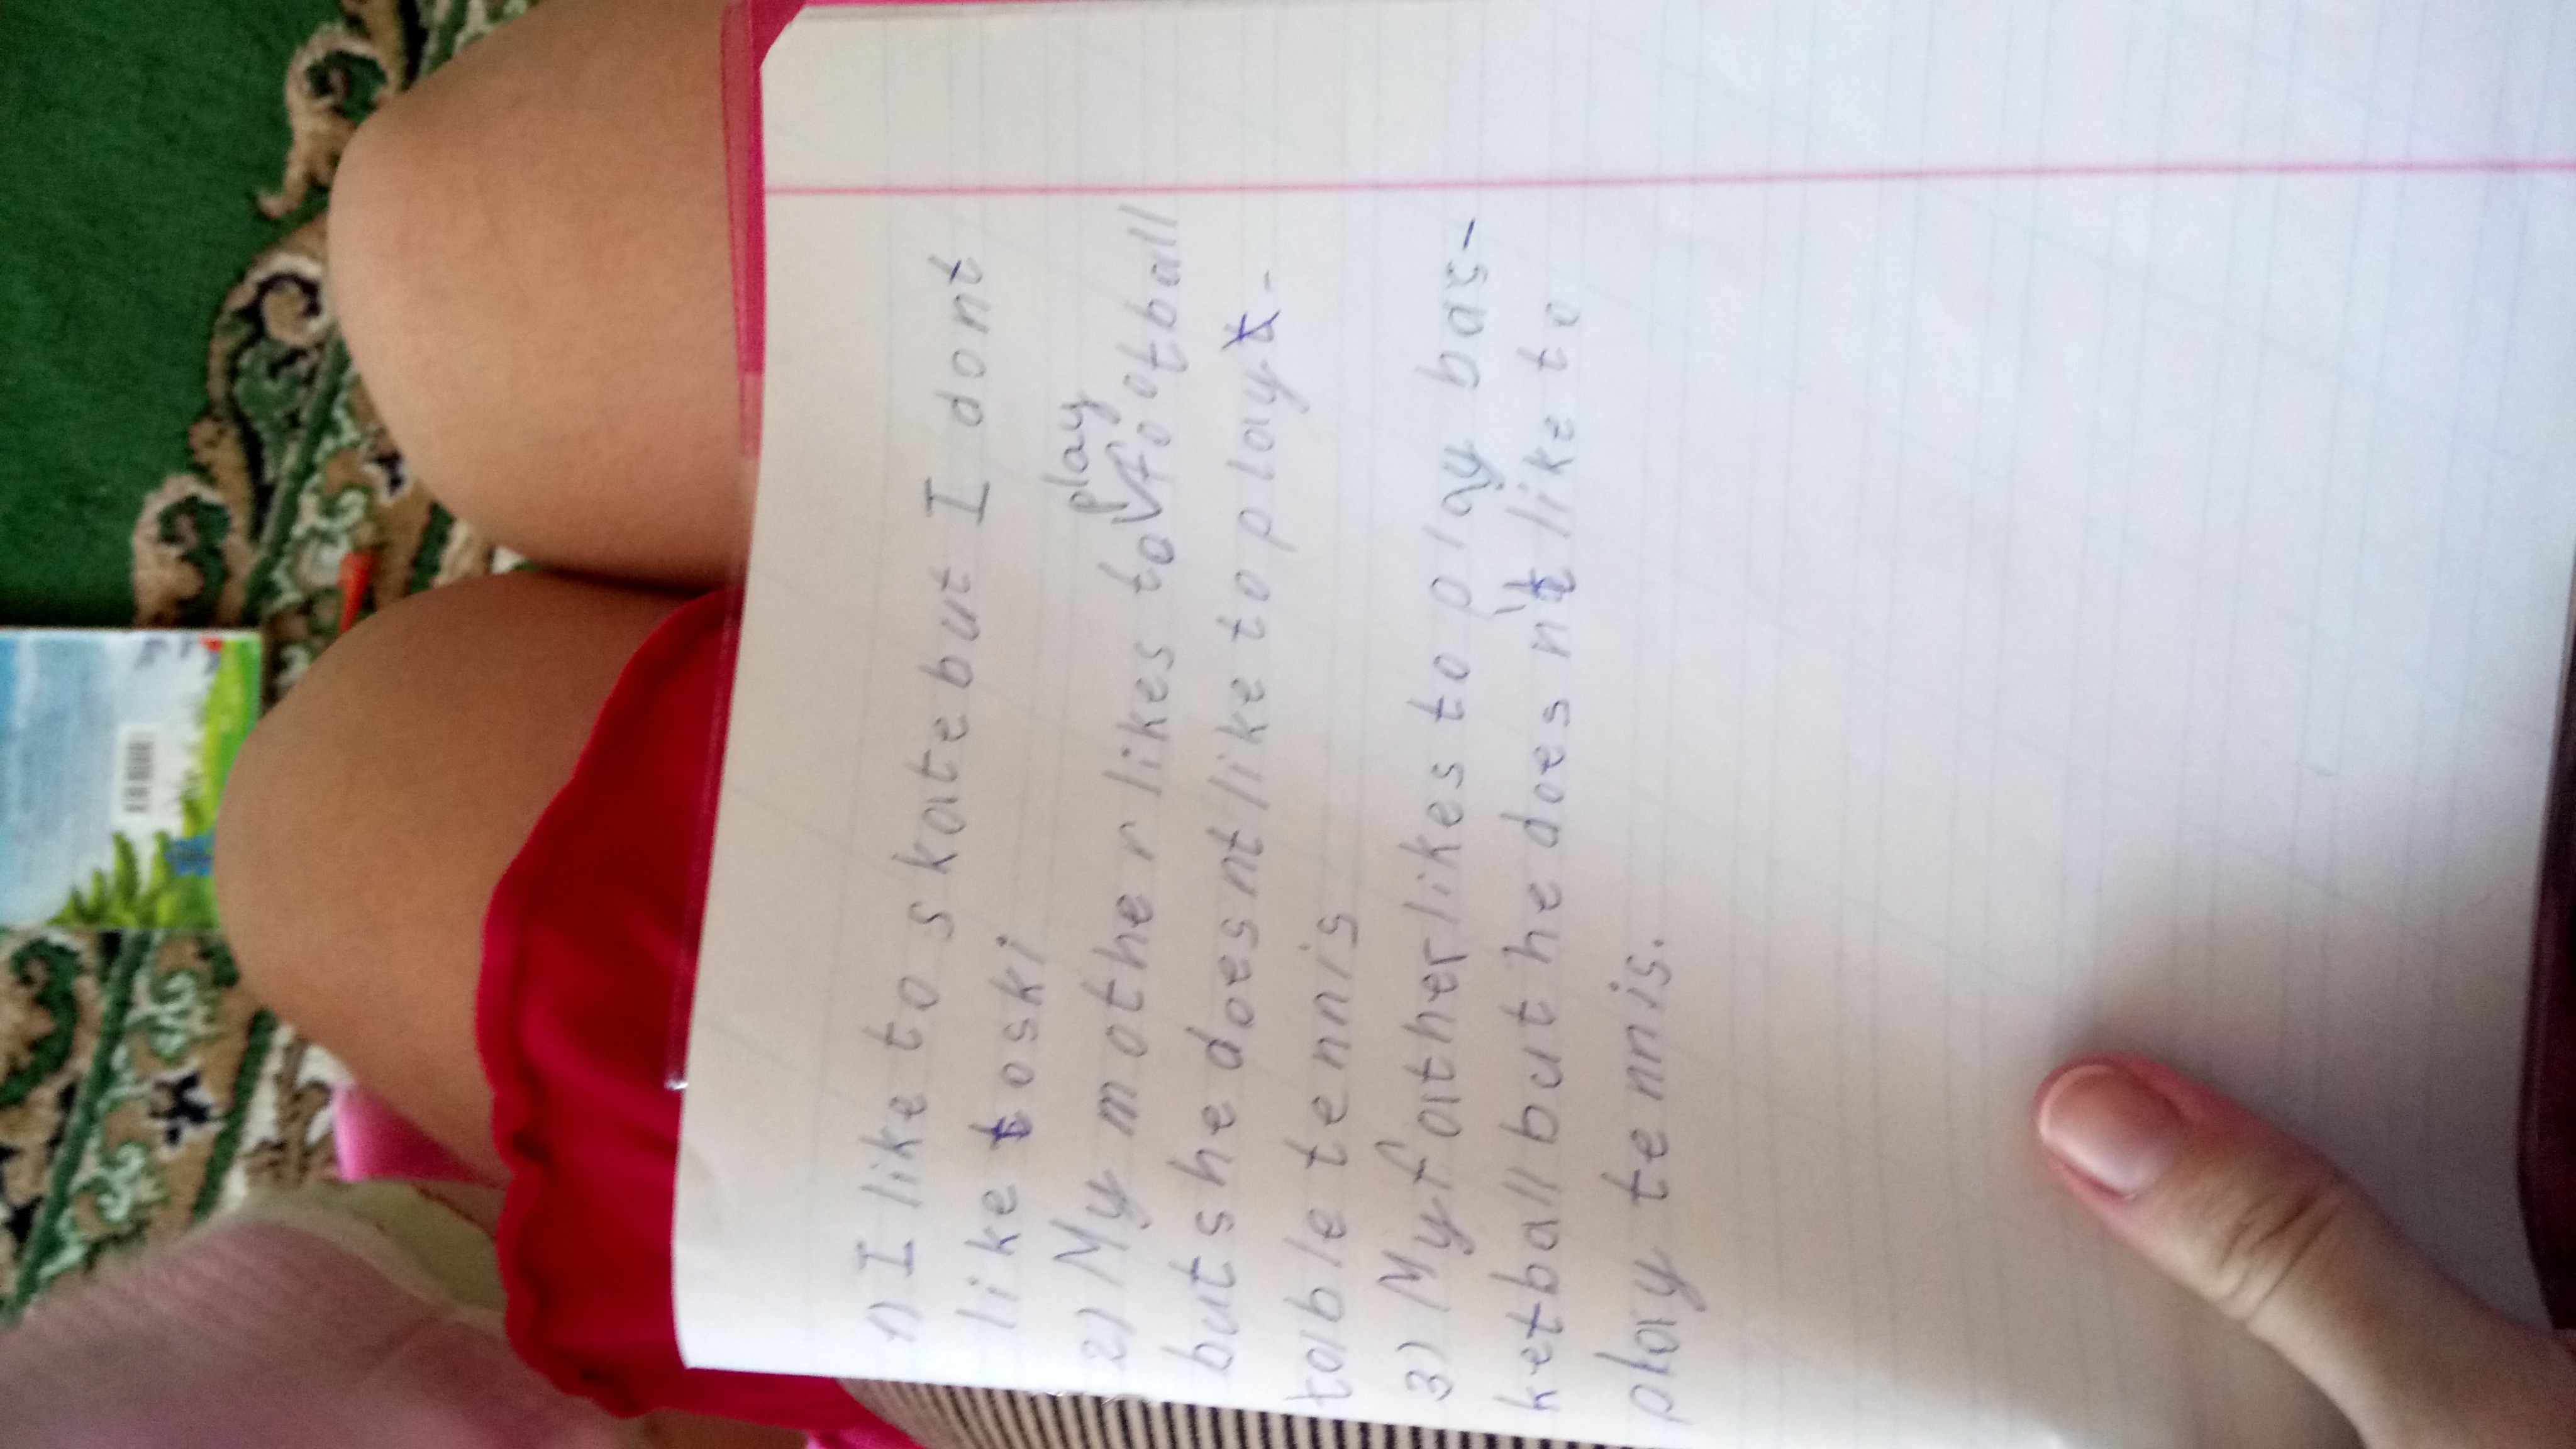 1) I like to skate but I dont
like to ski
2) My mother likes to play football
but she doesnt like to play -
table tennis
3) My father likes to play bas-
ketball but he doesn't like to
play tennis.